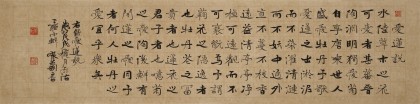 愛蓮說
水陸草木之花
可愛者甚蕃晉
陶淵明獨愛菊
自李唐來世人
盛愛牡丹予獨
愛蓮之出淤泥
而不染濯清漣
而不妖中通外
直不蔓不枝香
遠益清亭亭淨
植可遠觀而不
可褻玩焉予謂
菊花之隱逸者
也牡丹花之富
貴者也蓮花之
君子者也噫菊
之愛陶後鮮有
聞蓮之愛同予
者何人牡丹之
愛宜乎眾矣
右錄愛蓮說